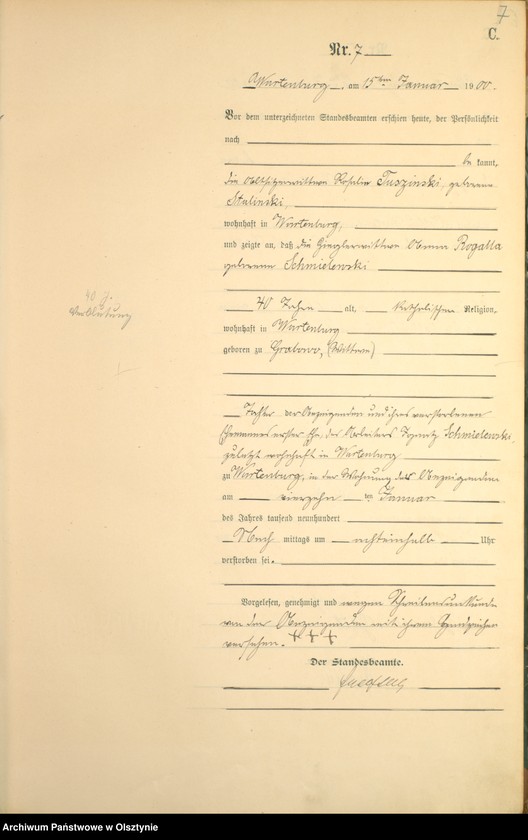 7
C.
Nr. 7
Wartenburg, am 15ten Januar 1900.
Vor dem unterzeichneten Standesbeamten erschien heute, der Persönlichkeit
nach
be kannt,
die Rosalie Tuszinski, geborene
Stalinski,
wohnhaft in Wartenburg,
und zeigte an, daß die Rogalla
geborene Schmielewski
40 Jahre alt, katholischer Religion,
wohnhaft in Wartenburg
geboren zu Grabowo, (Wittwe)
40 J.
Verblutung
Tochter der Anzeigenden und ihres verstorbenen
Ehemannes erster Ehe, des Arbeiters Schmielewski,
zuletzt wohnhaft in Wartenburg
zu Wartenburg, in der Wohnung der Anzeigenden
am vierzehn ten Januar
des Jahres tausend neunhundert
Nach mittags um achteinhalb Uhr
verstorben sei.
Vorgelesen, genehmigt und wegen Schreibensunkunde
von der Anzeigenden mit ihrem Handzeichen
versehen. +++
Der Standesbeamte.
Archiwum Państwowe w Olsztynie